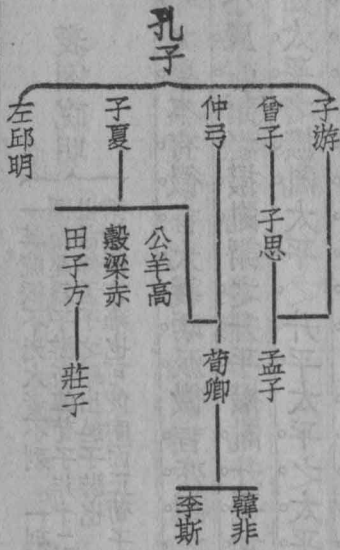 孔子
子游
曾子
子思
孟子
仲弓
荀卿
韓非
李斯
子夏
公羊高
穀梁赤
田子方
莊子
左邱明